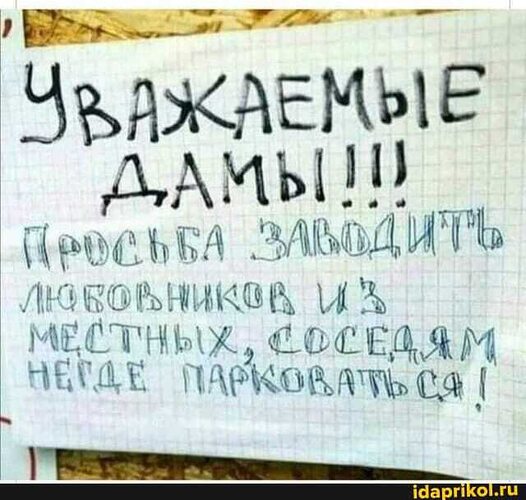 УВАЖАЕМЫЕ
ДАМЫ!!!
ПРОСЬБА ЗАВОДИТЬ
ЛЮБОВНИКОВ ИЗ
МЕСТНЫХ, СОСЕДЯМ
НЕГДЕ ПАРКОВАТЬСЯ!
idaprikol.ru